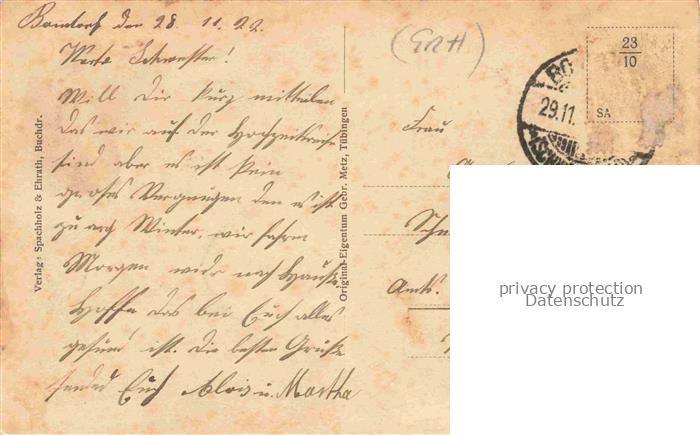 Bonndorf den 28. 11. 22.
Werte Schwester!
Will Dir kurz mitteilen
das wir auf der Hochzeitreise
sind aber es ist kein
großes Vergnügen den es ist
zu arg Winter, wir fahren
Morgen wieder nach Hause
Hoffe das bei Euch alles
gesund ist. Die besten Grüße
sendet Euch Alois u. Martha
Verlag: Spachholz & Ehrath, Buchdr.
Original-Eigentum Gebr. Metz, Tübingen
23
10
SA
BO
29.11.
(SCHW
Frau
Sch
Amts.
privacy protection
Datenschutz